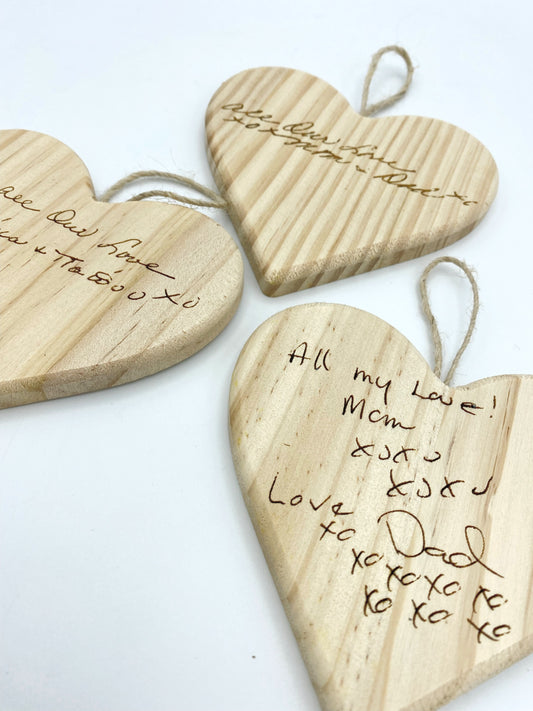 all Our Love
xoxx Mom + Dad xo
all Our Love
XO
All my Love!
Mom
xoxo
xoxo
Love
xo Dad
xo xo
xoxo xo
xo xo xo